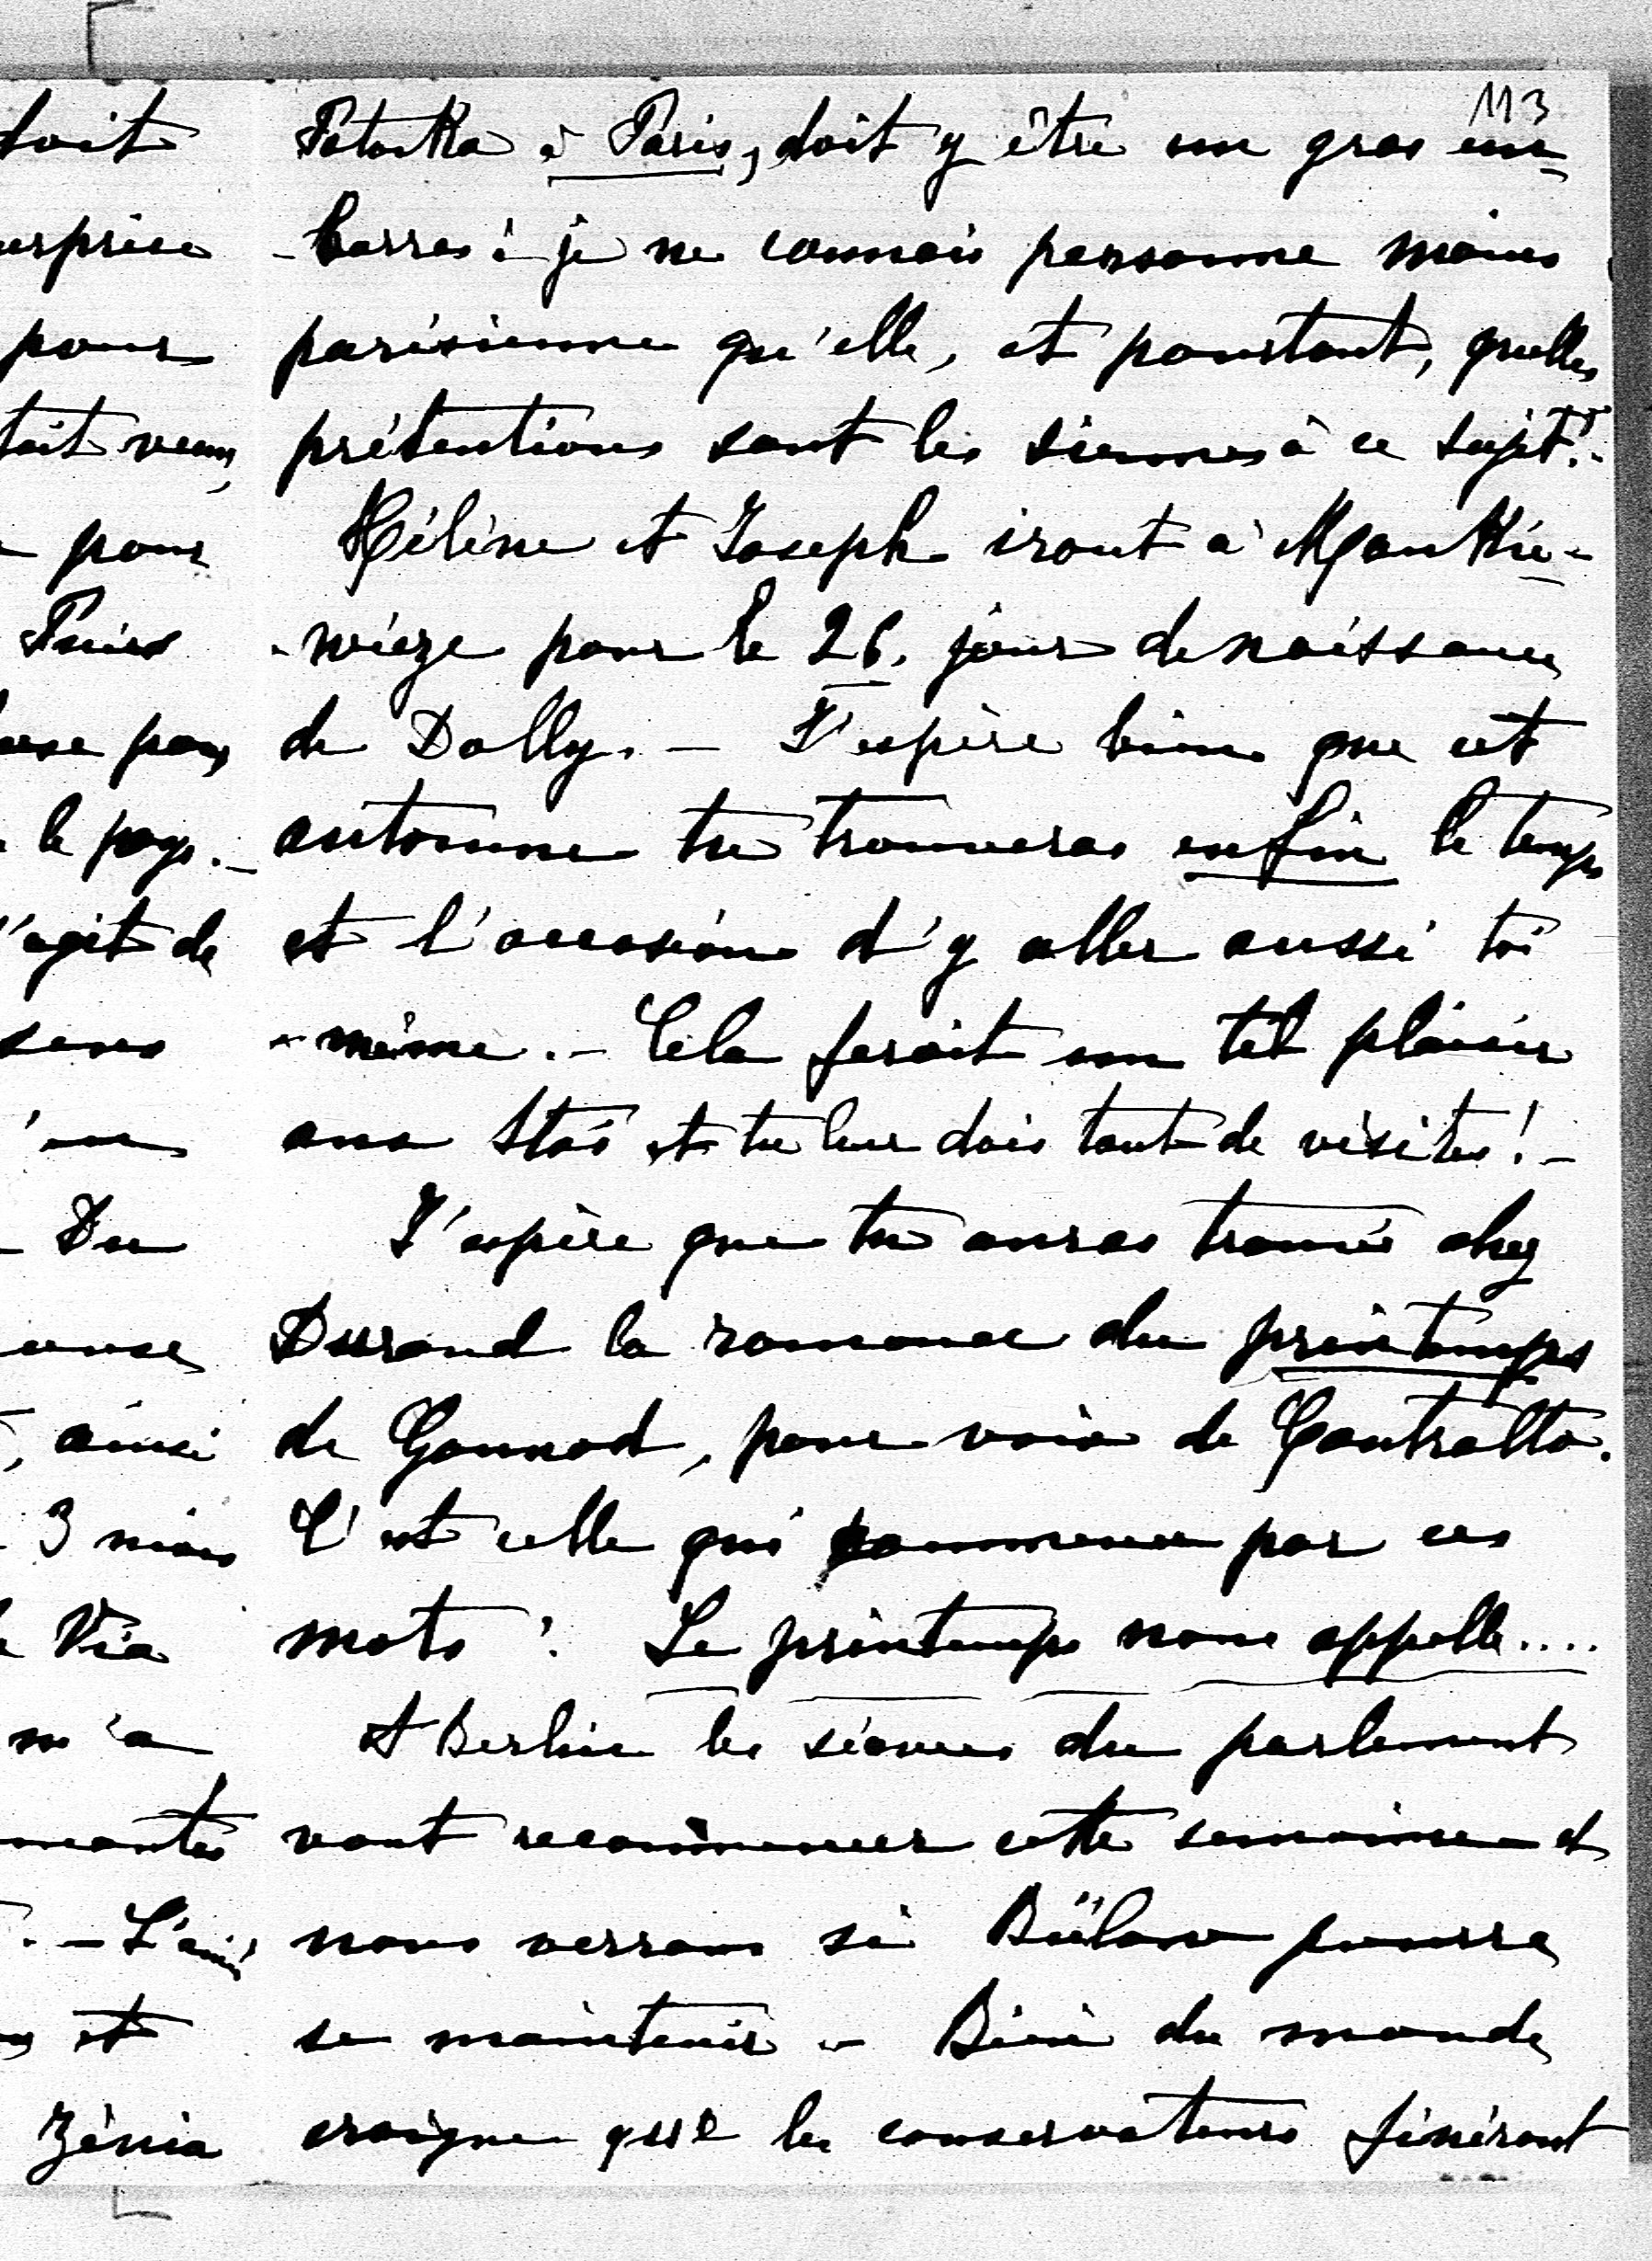 113
Potocka à Paris, doit y être un gros em-
-barras : je ne connais personne moins
parisienne qu'elle, et pourtant, quelles
prétentions sont les siennes à ce sujet !.
Hélène et Joseph iront à Mańkie-
-wicze pour le 26, jour de naissance
de Dolly. – J'espère bien que cet
automne tu trouveras enfin le temps
et l'occasion d'y aller aussi toi
-même. – Cela ferait un tel plaisir
aux Staś et tu leur dois tant de visites ! –
J'espère que tu auras trouvé chez
Durand la romance du printemps
de Gounod, pour voix de Contralto.
C'est celle qui commence par ces
mots : Le printemps nous appelle....
A Berlin les séances du parlement
vont recommencer cette semaine et
nous verrons si Bülow pourra
se maintenir – Bien du monde
craigne que les conservateurs finiront
doit
pour
tait venu,
pour
le pays. –
s'agit de
sens
Du
, ainsi
3 mois
Via
m'a
et
Zénia